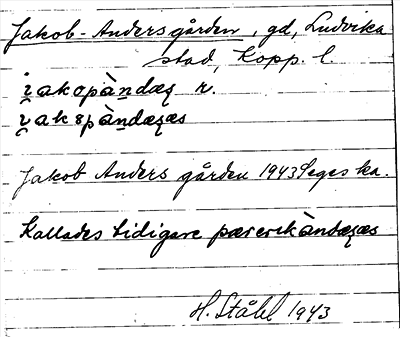 Jakob-Andersgården, gd, Ludvika
stad, Kopp. l
i̯akopàndæʂ r.
i̯ak8pàndæʂæs
Jakob Anders gården 1943 Segeska.
Kallades tidigare pærerikàndæʂæs
H. Ståhl 1943